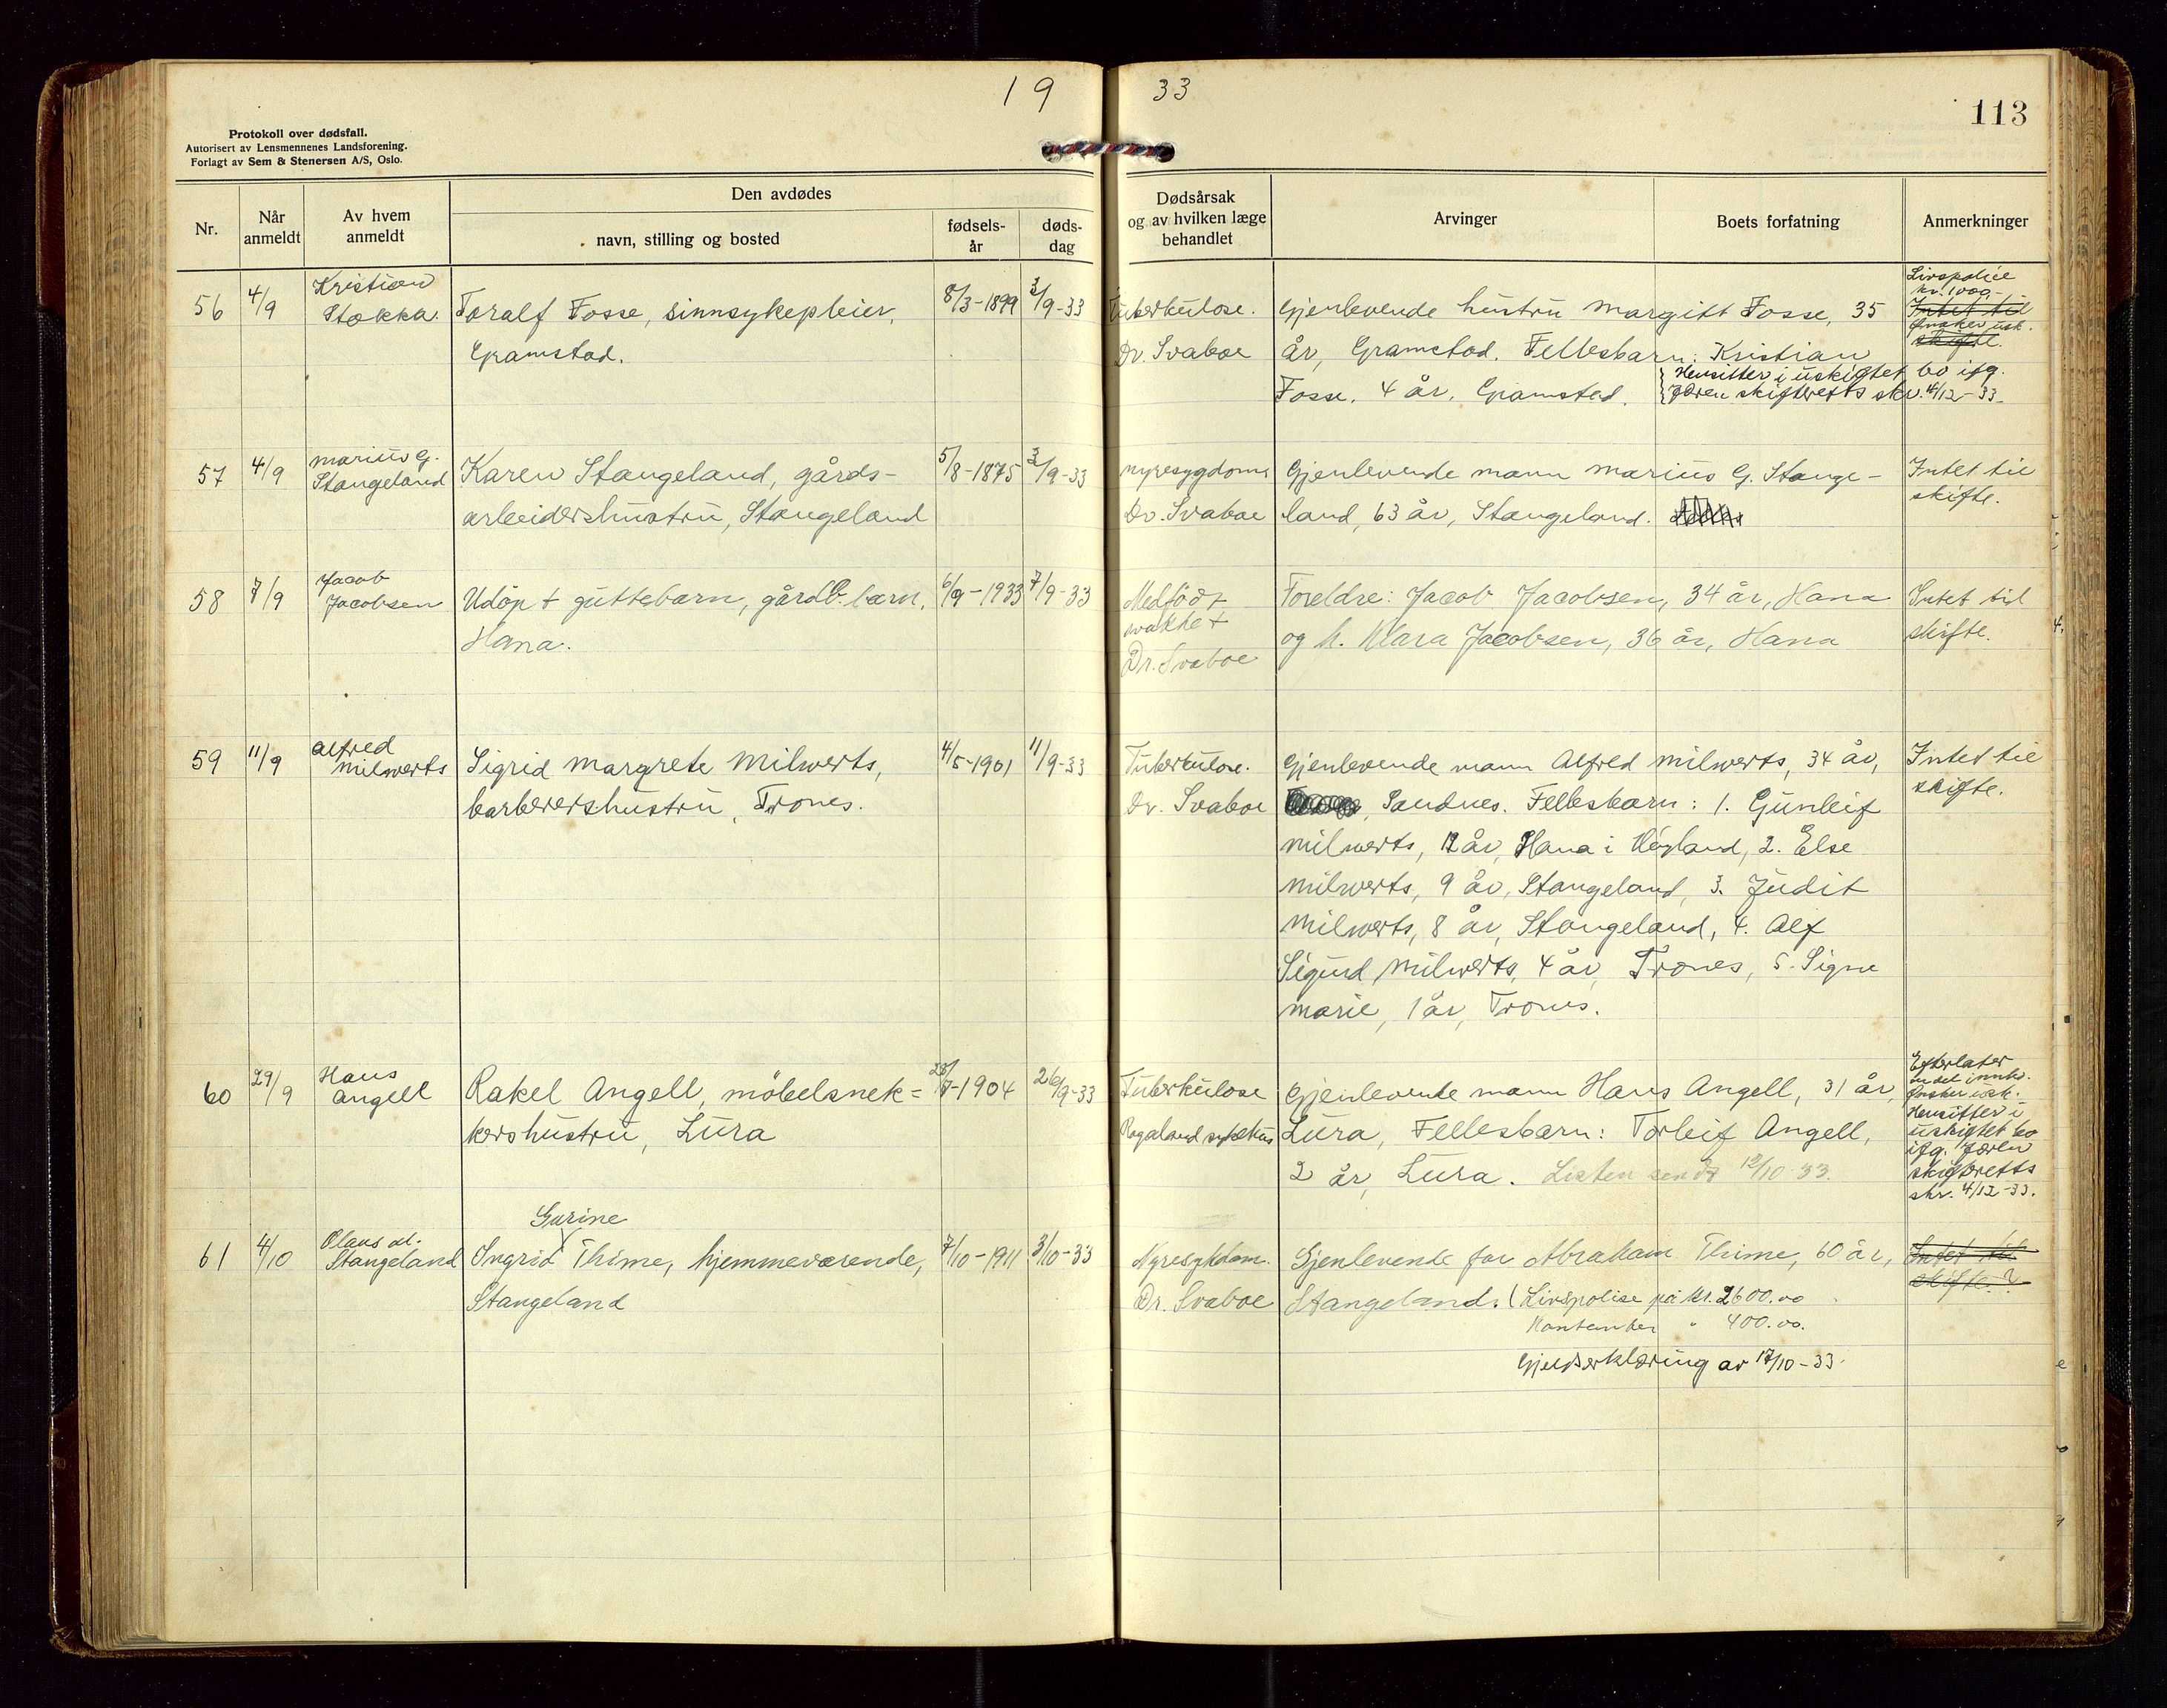 19 33
113
Protokoll over dødsfall.
Autorisert av Lensmennenes Landsforening.
Forlagt av Sem & Stenersen A/S, Oslo.
Nr.
Når anmeldt
Av hvem anmeldt
Den avdødes
navn, stilling og bosted
fødselsår
dødsdag
Dødsårsak og av hvilken læge behandlet
Arvinger
Boets forfatning
Anmerkninger
56 4/9 Kristian Stokka. Toralf Fosse, sinnsykepleier, 8/3-1899 3/9-33 Tuberkulose. Gjenlevende hustru Margitt Fosse, 35
Gramstad. Dr. Svaboe år, Gramstad. Fellesbarn: Kristian
Fosse, 4 år, Gramstad.
Hensitter i uskiftet bo ifg.
Jæren skifteretts skr. 4/12-33.
Livspolise
kr. 1000.-
Intet til
Ønsker usk.
skifte.
57 4/9 Marius G. Stangeland Karen Stangeland, gårds- 5/8-1875 3/9-33 Nyresygdom Gjenlevende mann Marius G. Stange- Intet til
arbeidershustru, Stangeland Dr. Svaboe land, 63 år, Stangeland. skifte.
58 7/9 Jacob Jacobsen Udöpt guttebarn, gårdb. barn, 6/9-1933 7/9-33 Medfödt Foreldre: Jacob Jacobsen, 34 år, Hana Intet til
Hana. svakhet og h. Klara Jacobsen, 36 år, Hana skifte.
Dr. Svaboe
59 11/9 Alfred Milwerts Sigrid Margrete Milwerts, 4/5-1901 11/9-33 Tuberkulose. Gjenlevende mann Alfred Milwerts, 34 år, Intet til
barberershustru, Trones. Dr. Svaboe Sandnes. Fellesbarn: 1. Gunleif skifte.
Milwerts, 12 år, Hana i Høyland, 2. Else
Milwerts, 9 år, Stangeland, 3. Judit
Milwerts, 8 år, Stangeland, 4. Alf
Sigurd Milwerts, 4 år, Trones, 5. Signe
Marie, 1 år, Trones.
60 29/9 Hans Angell Rakel Angell, möbelsnek= 1904 26/9-33 Tuberkulose Gjenlevende mann Hans Angell, 31 år,
kershustru, Lura Rogaland sykehus Lura, Fellesbarn: Torleif Angell,
2 år, Lura. Listen sendt 12/10-33.
Efterlater
endel innbo.
Ønsker usk.
Hensitter i
uskiftet bo
ifg. Jæren
skifteretts
skr. 4/12-33.
Gurine
61 4/10 Olaus M. Stangeland Ingrid Thime, hjemmeværende, 7/10-1911 3/10-33 Nyresykdom. Gjenlevende far Abraham Thime, 60 år, Intet til
Stangeland Dr. Svaboe Stangeland. (Livspolise på kr. 2600.00 skifte?
Kontanter " 400.00.
Gjeldserklæring av 17/10-33.